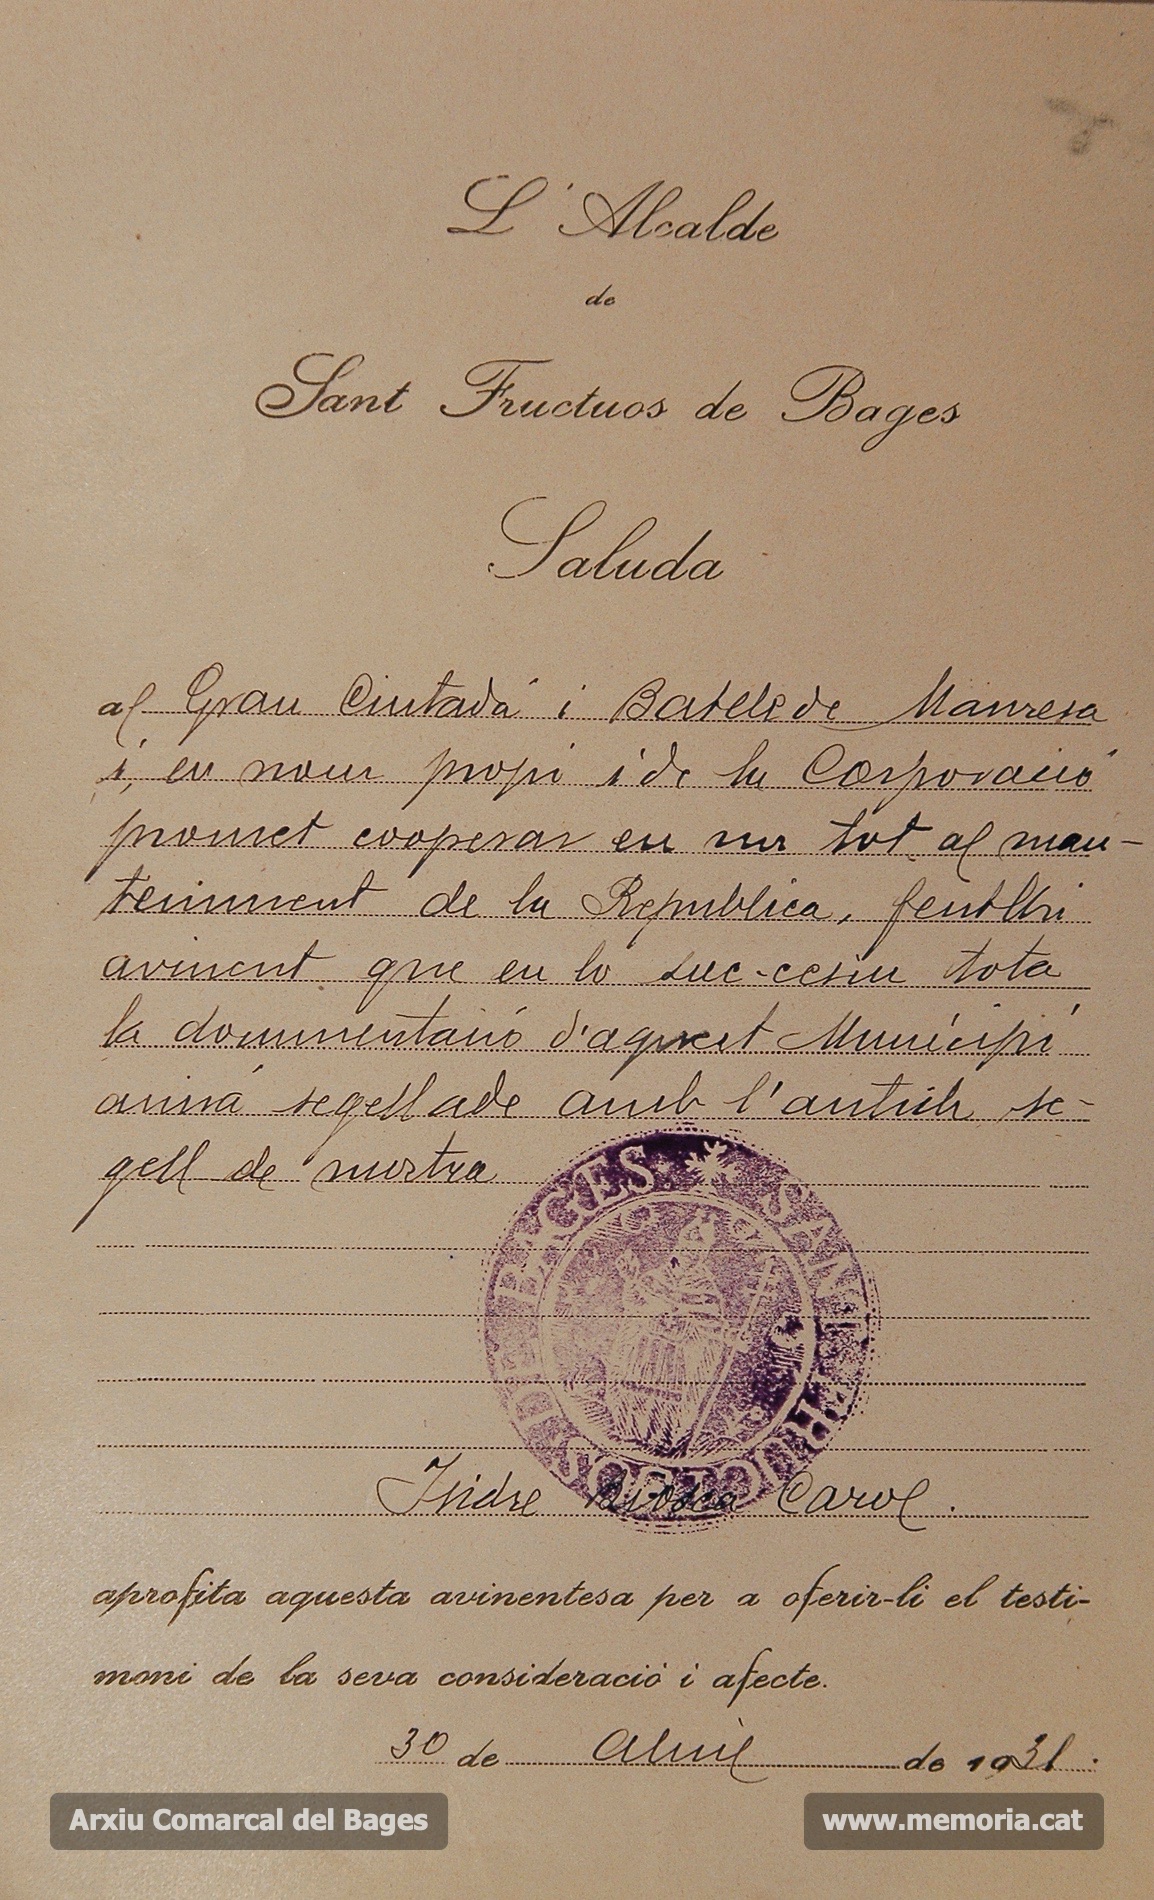 L'Alcalde
de
Sant Fructuos de Bages
Saluda
al Gran Ciutadá i Batlle de Manresa
i, en nom propi i de la Corporació
promet cooperar en un tot al man-
teniment de la Republica, fentlhi
avinent que en lo suc-cesiu tota
la documentació d'aquest Municipi
anirá segellade amb l'antich se-
gell de mostra
SANT FRUCTUOS DE BAGES
Isidre Biosca Carol.
aprofita aquesta avinentesa per a oferir-li el testi-
moni de la seva consideració i afecte.
30 de Abril de 1931.
Arxiu Comarcal del Bages
www.memoria.cat